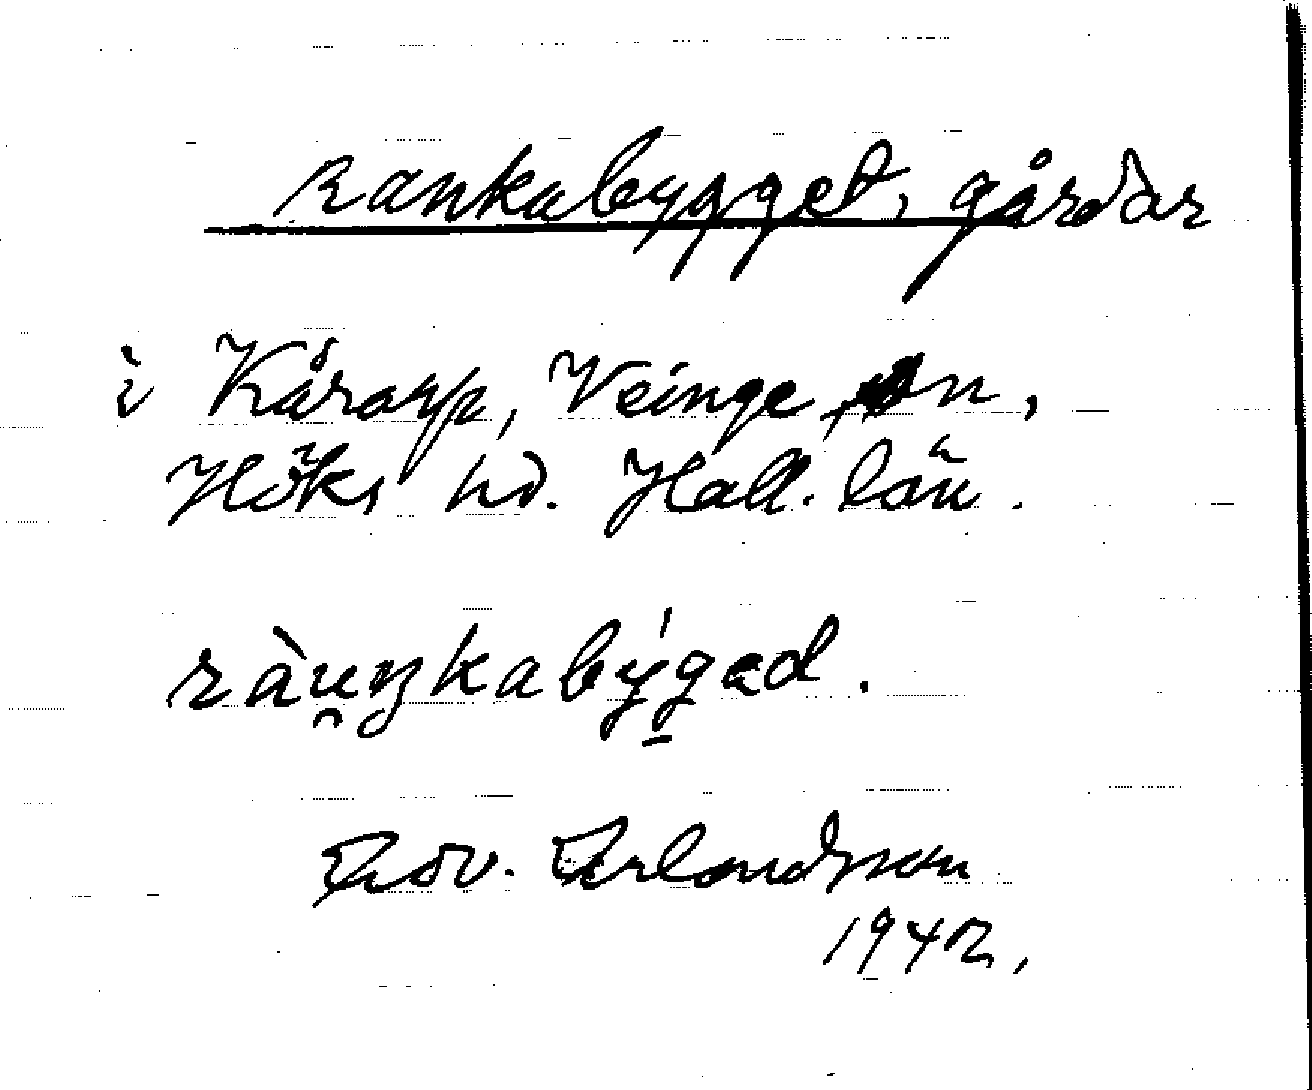 Rankabygget, gårdar
i Kårarp, Veinge sn,
Höks hd. Hall. län.
ràu̯ŋkabýg̱ed.
Edv. Erlandsson
1942.